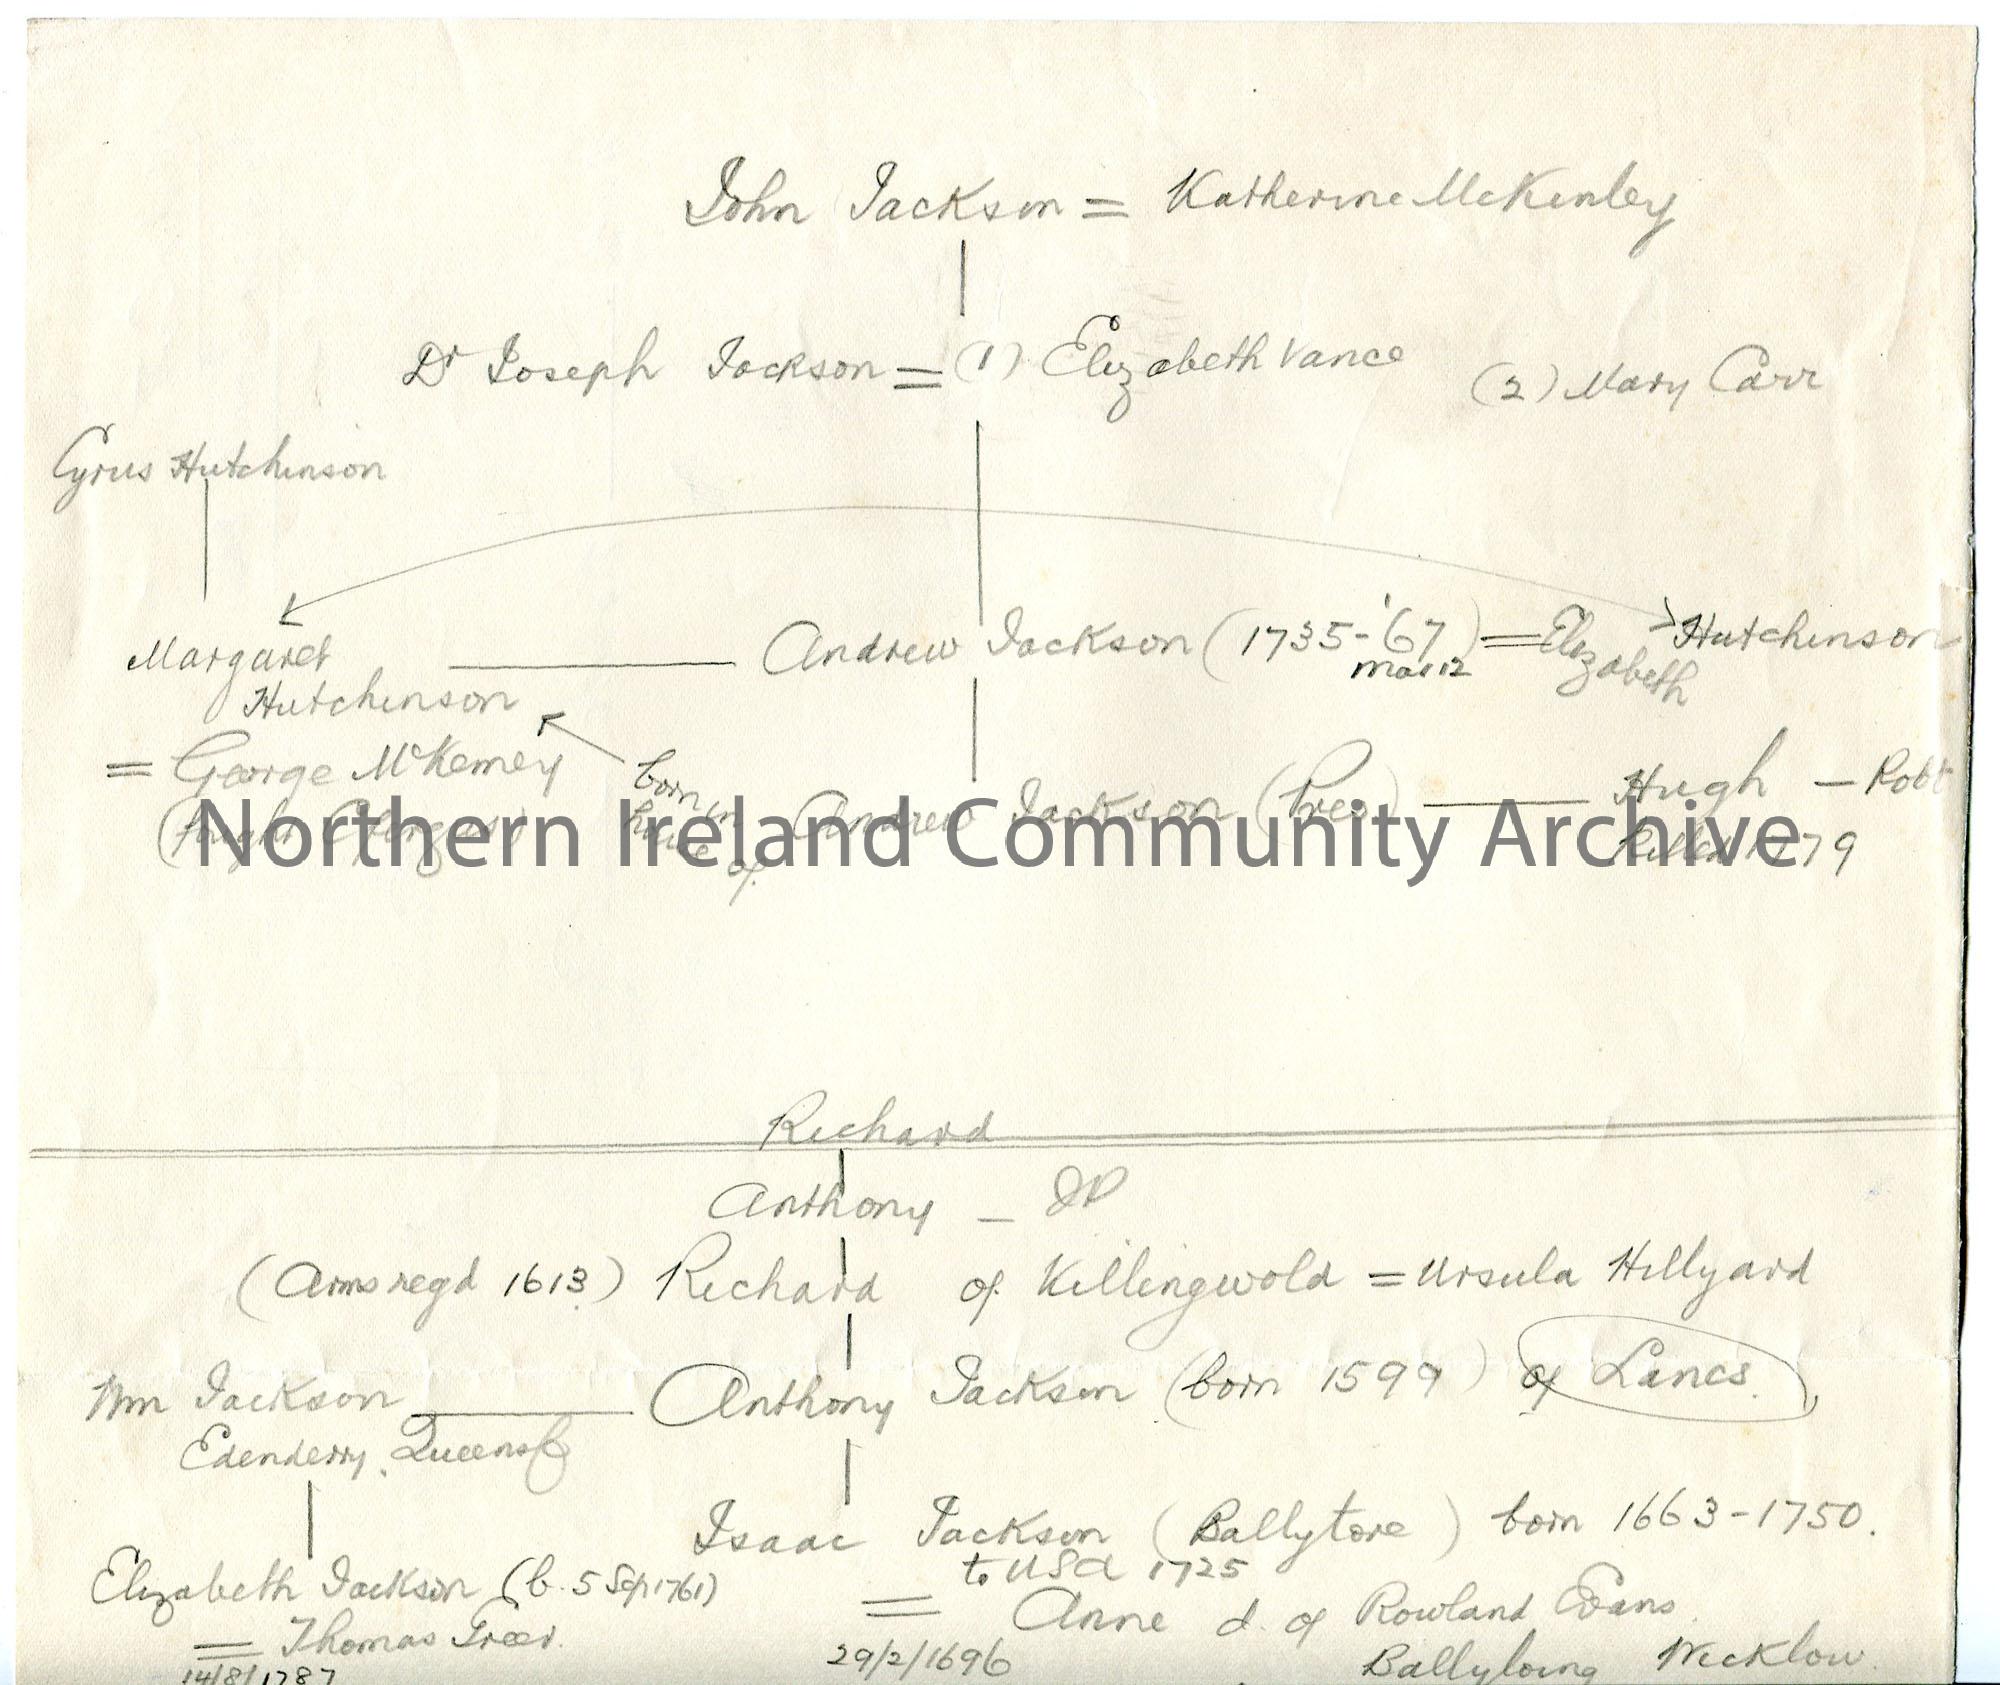 John Jackson = Katherine McKinley
Dr Joseph Jackson = (1) Elizabeth Vance (2) Mary Carr
Cyrus Hutchinson
Margaret Hutchinson — Andrew Jackson (1735-'67) = Elizabeth Hutchinson
Mar 12
= George McKemey
born in house of
Andrew Jackson (Pres) — Hugh — Robt
killed 1779
Northern Ireland Community Archive
Richard
Anthony — JP
(Arms regd 1613) Richard of Killingwold = Ursula Hillyard
Wm Jackson — Anthony Jackson (born 1599) of Lancs.
Edenderry, Queens
Isaac Jackson (Ballytore) born 1663-1750.
to USA 1725
Elizabeth Jackson (b. 5 Sep 1761)
= Anne d. of Rowland Evans
= Thomas Greer.
29/2/1696
Wicklow
14/8/1787